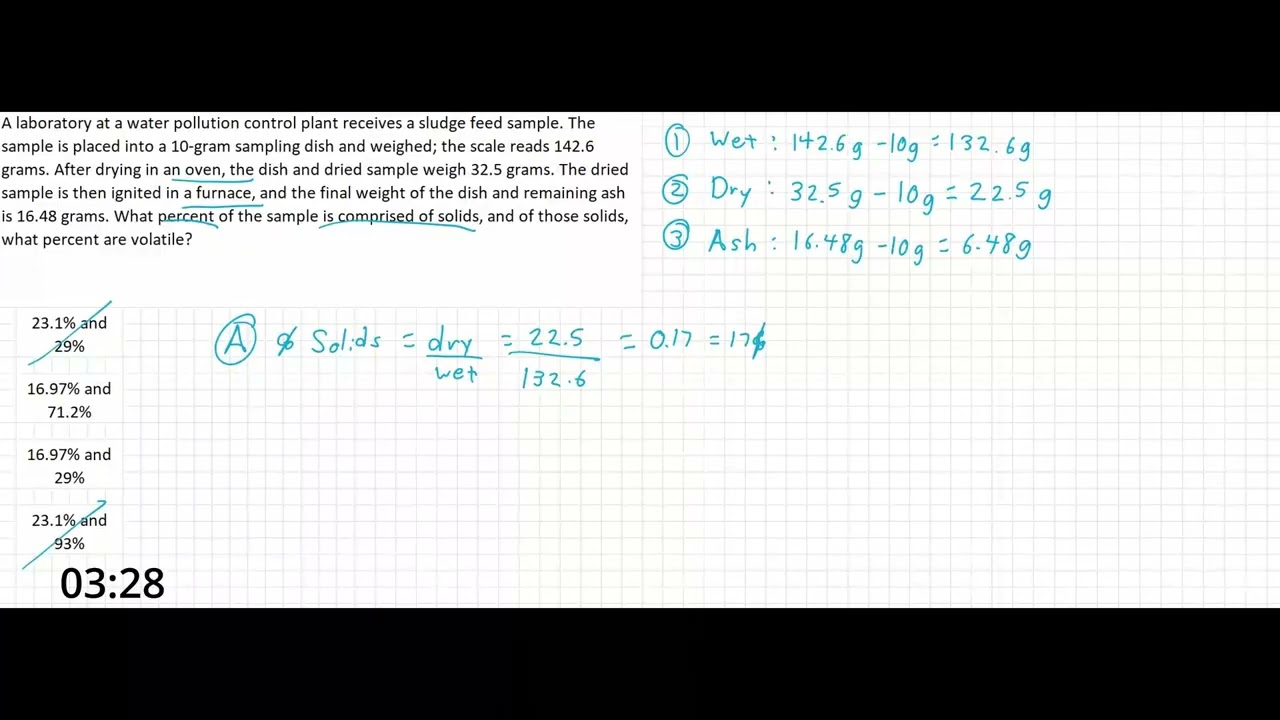 A laboratory at a water pollution control plant receives a sludge feed sample. The
sample is placed into a 10-gram sampling dish and weighed; the scale reads 142.6
grams. After drying in an oven, the dish and dried sample weigh 32.5 grams. The dried
sample is then ignited in a furnace, and the final weight of the dish and remaining ash
is 16.48 grams. What percent of the sample is comprised of solids, and of those solids,
what percent are volatile?
① Wet : 142.6g - 10g = 132.6g
② Dry : 32.5g - 10g = 22.5g
③ Ash : 16.48g - 10g = 6.48g
23.1% and
29%
16.97% and
71.2%
16.97% and
29%
23.1% and
93%
Ⓐ % Solids = dry/wet = 22.5/132.6 = 0.17 = 17%
03:28